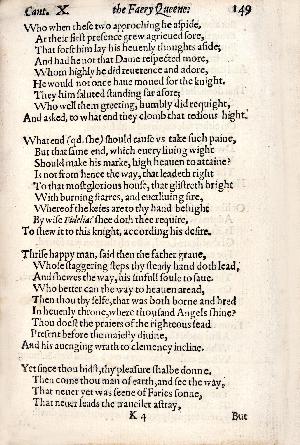 Cant. X. the Faery Queene. 149
Who when these two approching he aspide,
At their first presence grew agrieued sore,
That forst him lay his heuenly thoughts aside;
And had he not that Dame respected more,
Whom highly he did reuerence and adore,
He would not once haue moued for the knight.
They him saluted standing far afore;
Who well them greeting, humbly did requight,
And asked, to what end they clomb that tedious hight.
What end (qd. she) should cause vs take such paine,
But that same end, which euery liuing wight
Should make his marke, high heauen to attaine?
Is not from hence the way, that leadeth right
To that most glorious house, that glistreth bright
With burning starres, and euerliuing fire,
Whereof the keies are to thy hand behight
By wise Fidelia? shee doth thee require,
To shew it to this knight, according his desire.
Thrise happy man, said then the father graue,
Whose staggering steps thy steady hand doth lead,
And shewes the way, his sinfull soule to saue.
Who better can the way to heauen aread,
Then thou thy selfe, that was both borne and bred
In heuenly throne, where thousand Angels shine?
Thou doest the praiers of the righteous sead
Present before the maiesty diuine,
And his auenging wrath to clemency incline.
Yet since thou bidst, thy pleasure shalbe donne.
Then come thou man of earth, and see the way,
That neuer yet was seene of Faries sonne,
That neuer leads the traueiler astray,
K 4 But